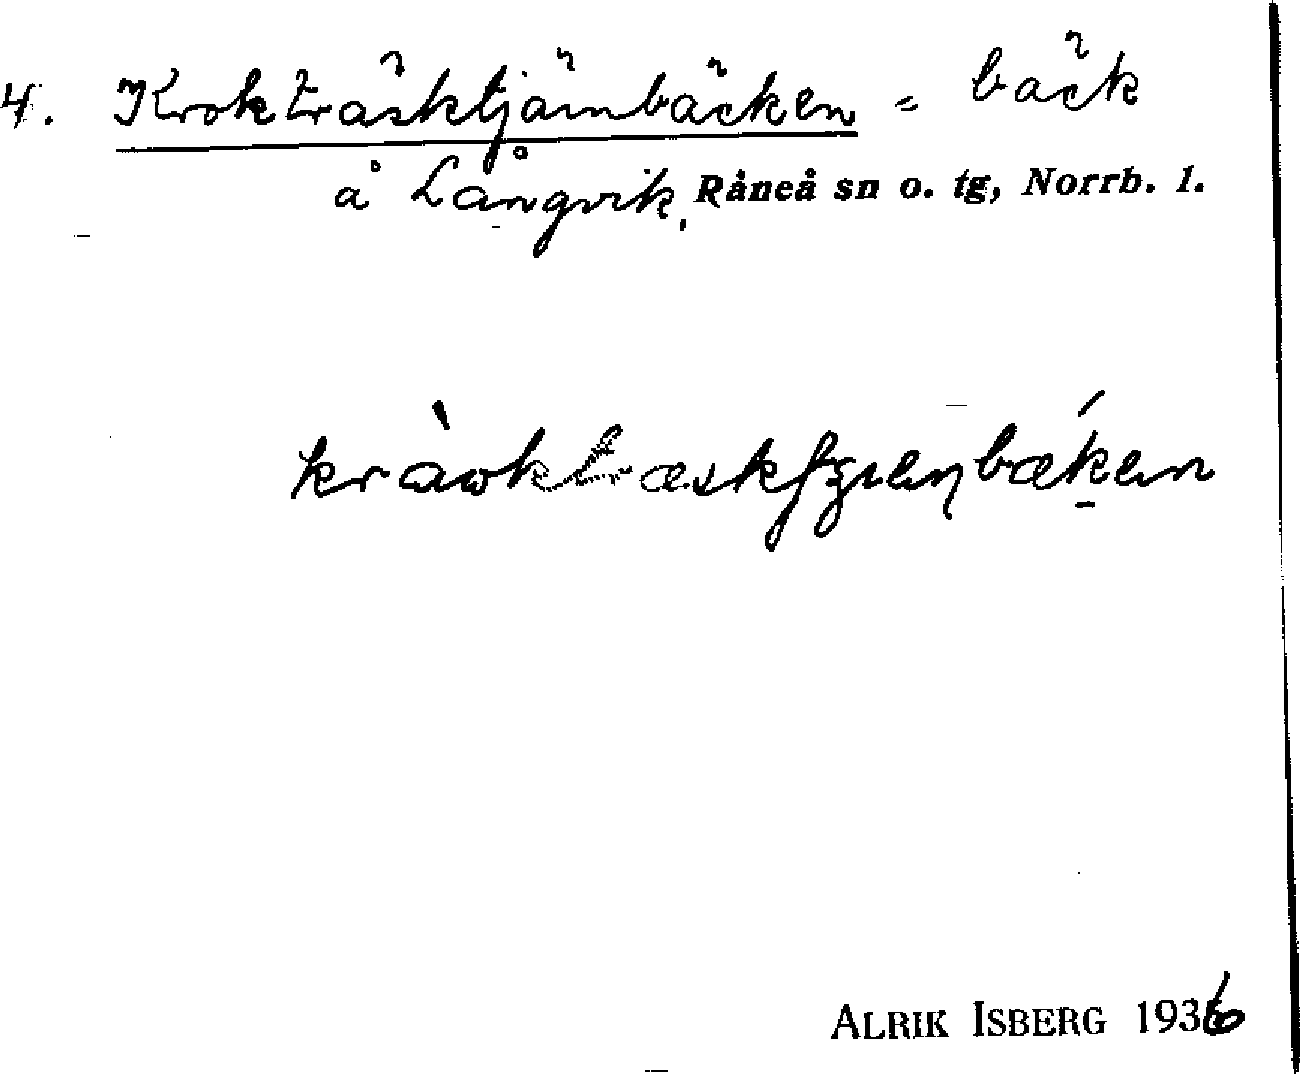 4. Kroktråsktjärnbäcken = bäck
å Långvik, Råneå sn o. tg, Norrb. l.
ALRIK ISBERG 1936